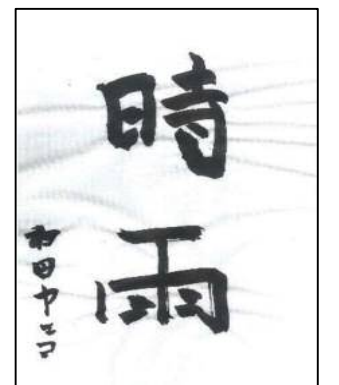 時雨
和田ヤエコ